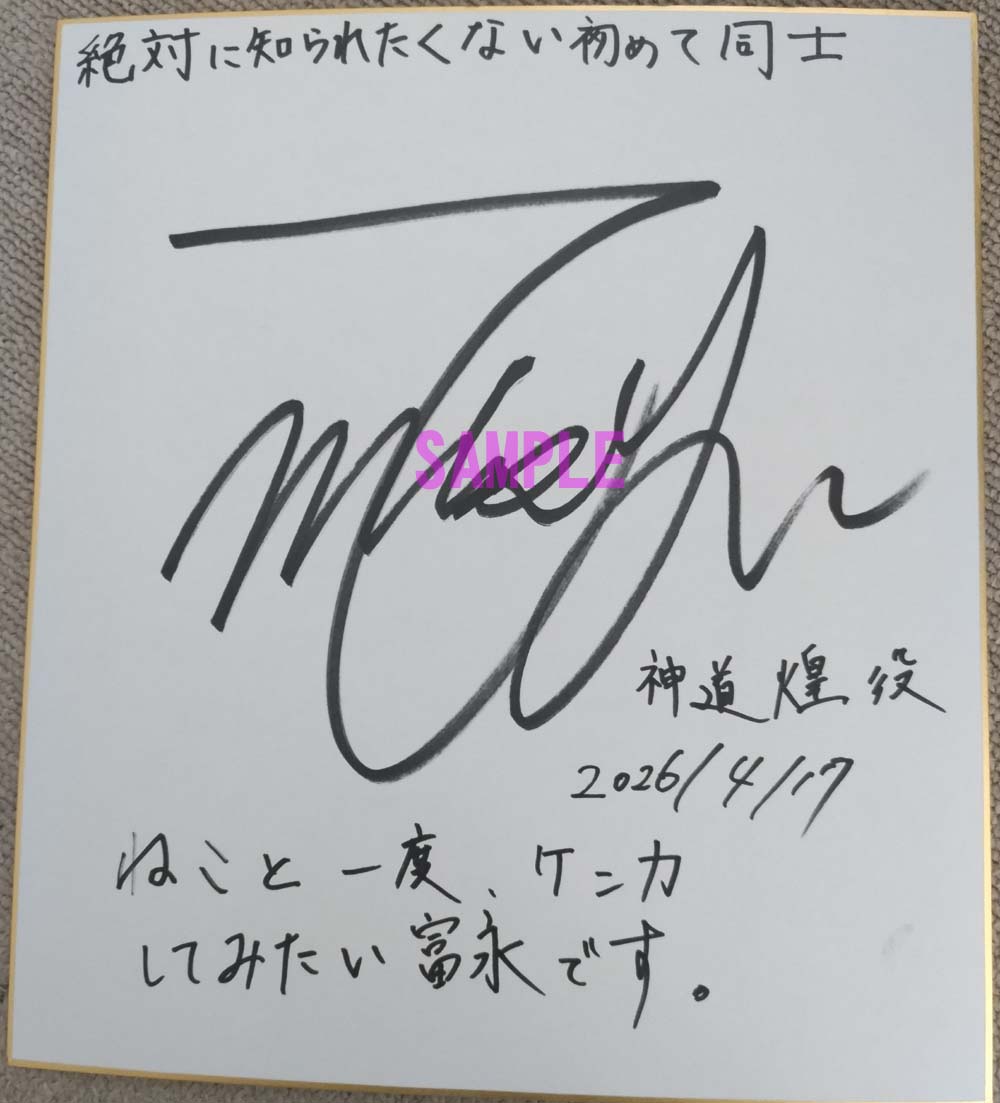 絶対に知られたくない初めて同士
SAMPLE
神道煌役
2026/4/17
ねこと一度、ケンカ
してみたい富永です。